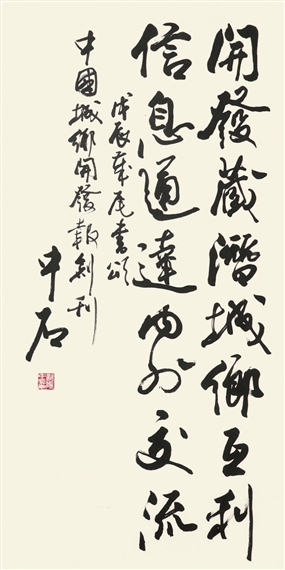 開發藏潛城鄉互利
信息通達内外交流
戊辰歲尾書頌
中國城鄉開發報創刊
中石